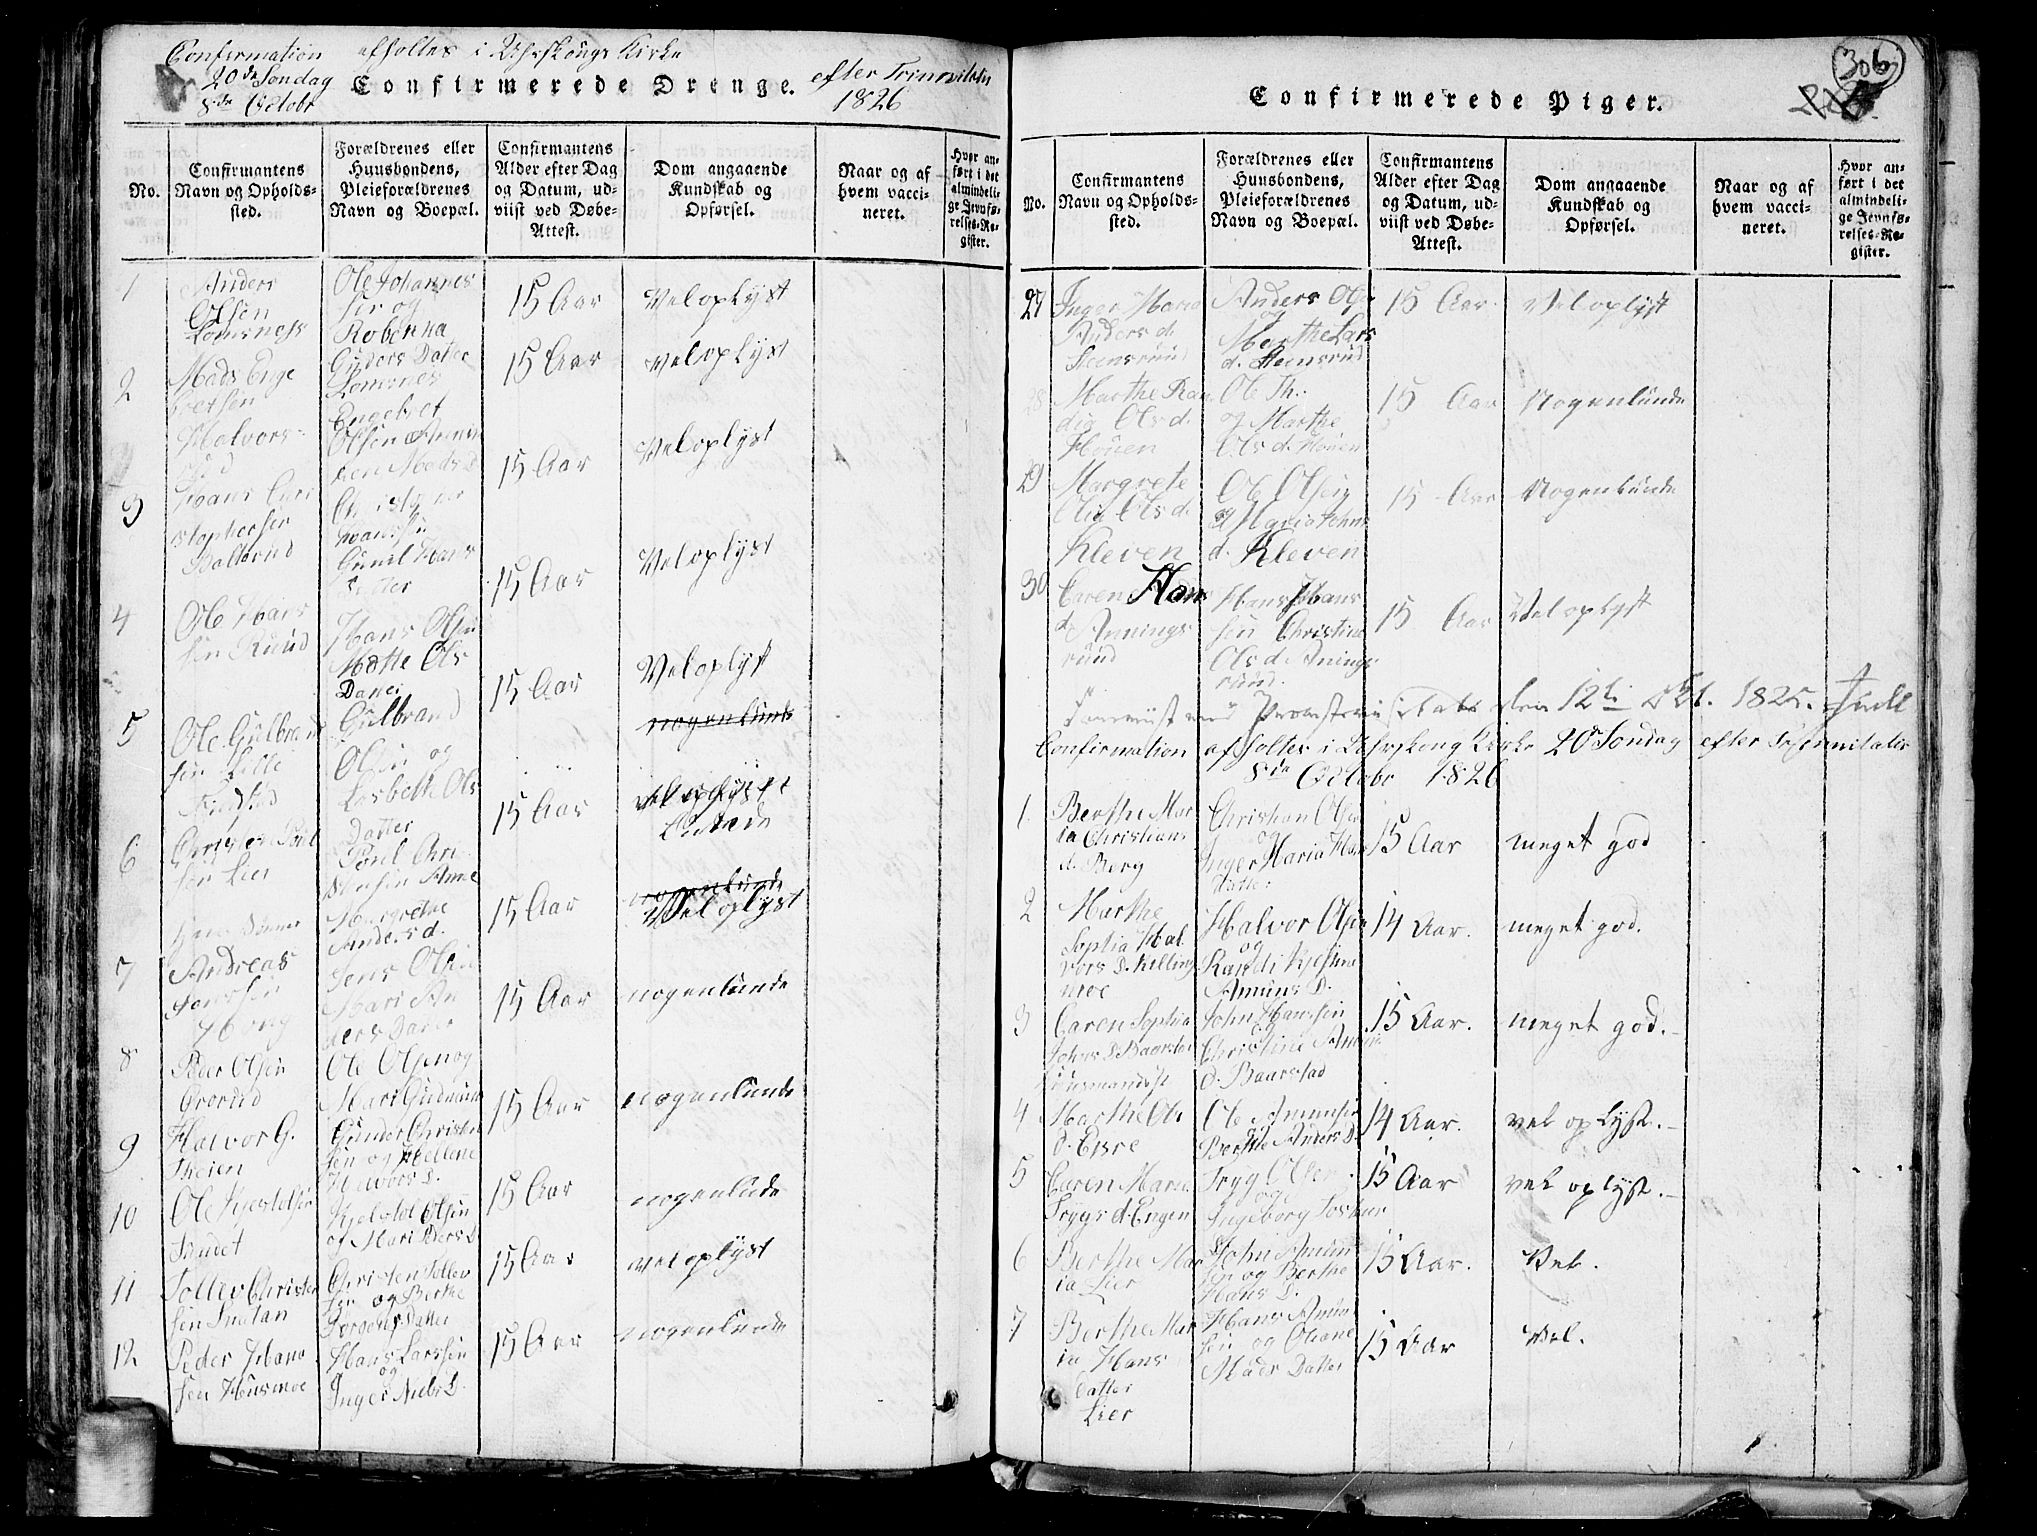 Confirmation afholtes i Uhrskougs Kirke
20de Søndag efter Trinitatis
8de Octobr 1826
Confirmerede Drenge.
No.
Confirmantens Navn og Opholds-
sted.
Forældrenes eller
Huusbondens,
Pleieforældrenes
Navn og Boepæl.
Confirmantens
Alder efter Dag
og Datum, ud-
viist ved Døbe-
Attest.
Dom angaaende
Kundskab og
Opførsel.
Naar og af
hvem vacci-
neret.
Hvor an-
ført i det
almindeli-
ge Jevnfø-
relses-Re-
gister.
1
Anders
Olsen
Lomsness
Ole Johannes
sen og
Gunders Datter
Lomsnes
15 Aar
Vel oplyst
2
Mads Enge
bretsen
Halvors-
rud
Engebret
Olsen
Mads D
15 Aar
vel oplyst
3
Hans Chri
stophersen
Hansen
Gunil Hans
Datter
15 Aar
Vel oplyst
4
Ole Hans
sen Ruud
Hans Olsen
Mette Ols
Datter
15 Aar
Vel oplyst
5
Ole Gulbrand
sen Lille
Gulbrand
Olsen og
Lisbeth Ols
Datter
15 Aar
Vel oplyst
nogenlunde
6
Christen Poul
sen Lier
Poul Chri
stensen Anne
Margrethe
Anders d.
15 Aar
nogenlunde
Vel oplyst
7
Andreas
Jenssen
Hong
Jens Olsen
Mari An
ders Datter
15 Aar
nogenlunde
8
Peder Olsen
Grorud
Ole Olsen og
Mari Gudmun
15 Aar
nogenlunde
9
Halvor G.
Theien
Gunder Christen
sen og Hellene
Halvors D.
15 Aar
nogenlunde
10
Ole Kjelstadsen
Kjelstad Olsen
og Mari Peders D
15 Aar
vel oplyst
11
Tollev Christen
sen
Christen Tollev
sen og Berthe
Jørgens Datter
15 Aar
nogenlunde
12
Peder Hans
sen Husmoe
Hans Larssen
og
Inger Niels D.
306
Confirmerede Piger.
No.
Confirmantens
Navn og Opholds-
sted.
Forældrenes eller
Huusbondens,
Pleieforældrenes
Navn og Boepæl.
Confirmantens
Alder efter Dag
og Datum, ud-
viist ved Døbe-
Attest.
Dom angaaende
Kundskab og
Opførsel.
Naar og af
hvem vacci-
neret.
Hvor an-
ført i det
almindeli-
ge Jevnfø-
relses-Re-
gister.
27
Inger Maria
Anders d.
Steensrud
Anders Olsen
og
Marthe Lars
d. Steensrud
15 Aar
Vel oplyst
28
Marthe Ran
dig Ols d.
Houen
Ole Th:
og Marthe
Ols d. Houen
15 Aar
Nogenlunde
29
Margrete
Olia Ols d.
Kleven
Ole Olsen
og Maria Johns
d. Kleven
15 Aar
Nogenlunde
30
Caren Hans
d. Annings
rund
Hans Hans
sen Christine
Ols d. Anings
rund.
15 Aar
Vel oplyst
den 12te Oct. 1825.
Confirmation afholtes i Uhrskoug Kirke 20de Søndag efter Trinnitatis
8de Octobr 1826
1.
Berthe Mar
ia Christians
d. Berg
Christian Olsen
og
Inger Maria Hans
Datter
15 Aar
meget god
2
Marthe
Sophia Hal
vors D. Killing
moe
Halvor Olsen
og
Randi Kjestine
Amuns D.
14 Aar.
meget god.
3
Caren Sophia
Johns D Baarstad
Huusmands
John Hanssen
og
Christine Amun
d. Baarstad
15 Aar.
meget god. -
4
Marthe Ols
d.
Ole Amunsen
og
Berthe Anders D.
14 Aar.
vel oplyst. -
5
Caren Marie
Trygs d. Engen
Tryg Olsen
og
Ingeborg
15 Aar
vel oplyst. -
6
Berthe Mar
ia Lier
John Amun
sen og Berthe
Hans D.
15 Aar.
Vel.
7
Berthe Mar
ia Hans
Datter
Lier
Hans Amun
sen og Oliane
Mads Datter
15 Aar
Vel.